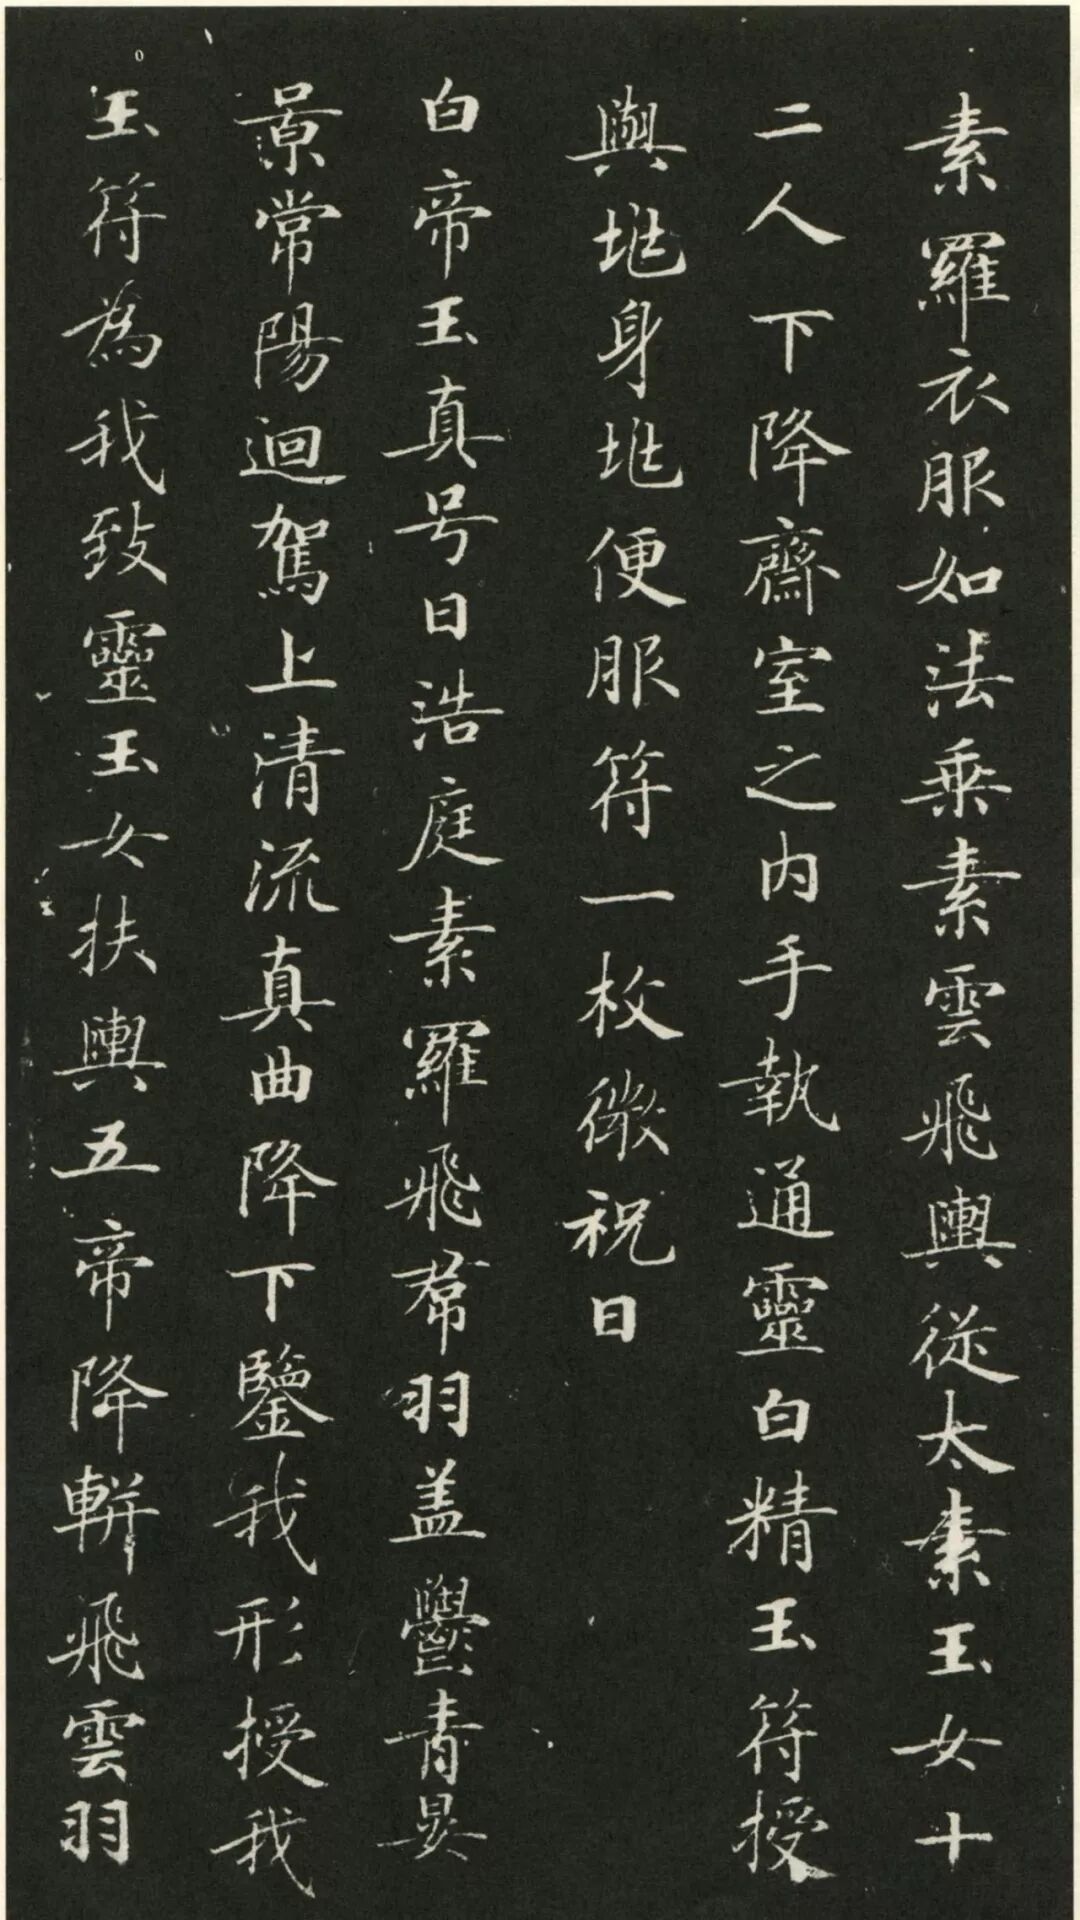 素羅衣服如法乘素雲飛輿從太素玉女十
二人下降齋室之內手執通靈白精玉符授
與兆身兆便服符一枚微祝曰
白帝玉真号曰浩庭素羅飛帬羽盖鬱青晃
景常陽迴駕上清流真曲降下鑒我形授我
玉符為我致靈玉女扶輿五帝降軿飛雲羽